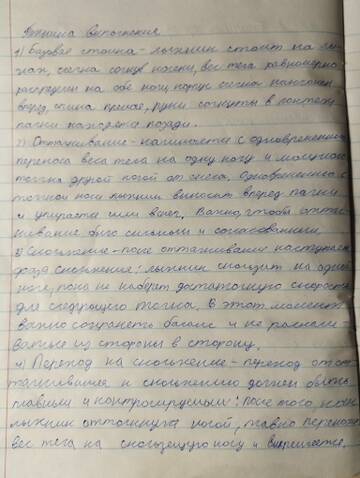 Техника выполнения
1) Базовая стойка - лыжник стоит на лы-
жах, слегка согнув колени, вес тела равномерно
распределен на обе ноги, корпус слегка наклонен
вперед, спина прямая, руки согнуты в локтях
палки находятся позади.
2) Отталкивание - начинается с одновременного
переноса веса тела на одну ногу и мощного
толчка другой ногой от снега. Одновременно с
толчком ноги лыжник выносит вперед палки
и упирается ими в снег. Важно чтобы оттал-
кивание было сильным и согласованным
3) Скольжение - после отталкивания наступает
фаза скольжения: лыжник скользит на одной
ноге, пока не наберет достаточную скорость
для следующего толчка. В этот момент
важно сохранять баланс и не раскачи-
ваться из стороны в сторону.
4) Переход на скольжение - переход от от-
талкивания к скольжению должен быть
плавным и контролируемым: после того, как
лыжник оттолкнулся ногой, плавно переносит
вес тела на скользящую ногу и